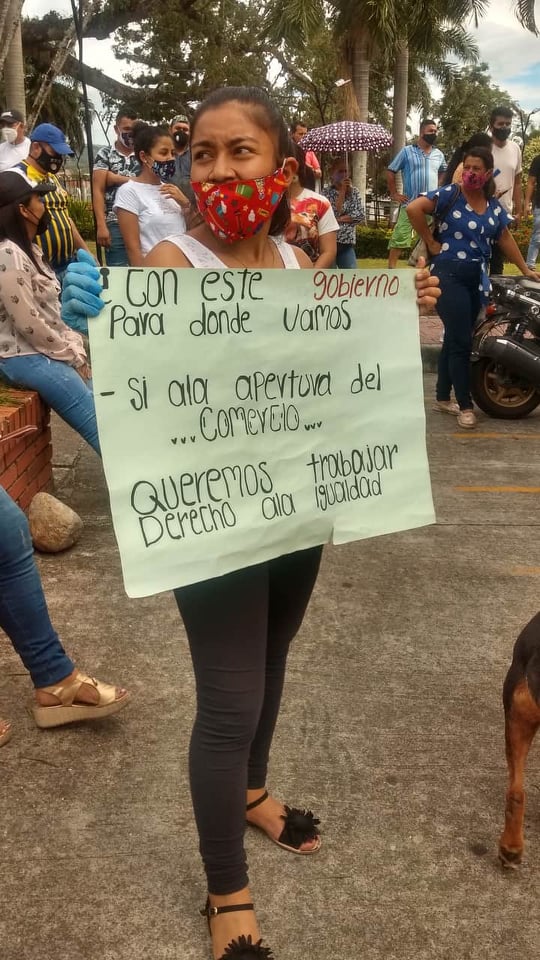 ¡ Con este gobierno
Para donde vamos
- Si ala apertura del
...Comercio...
Queremos trabajar
Derecho ala igualdad